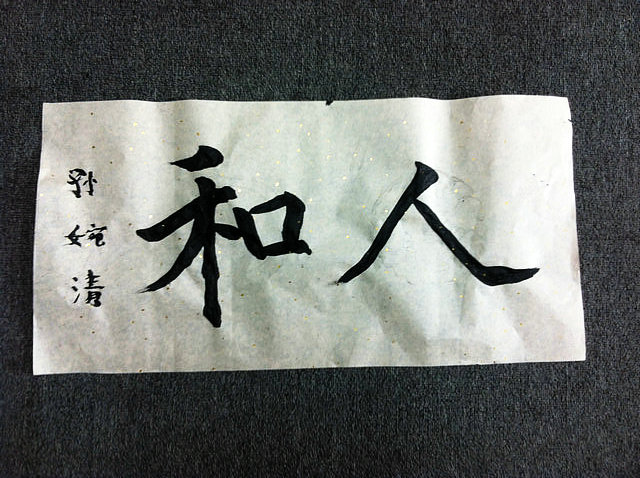 人和
孙婉清